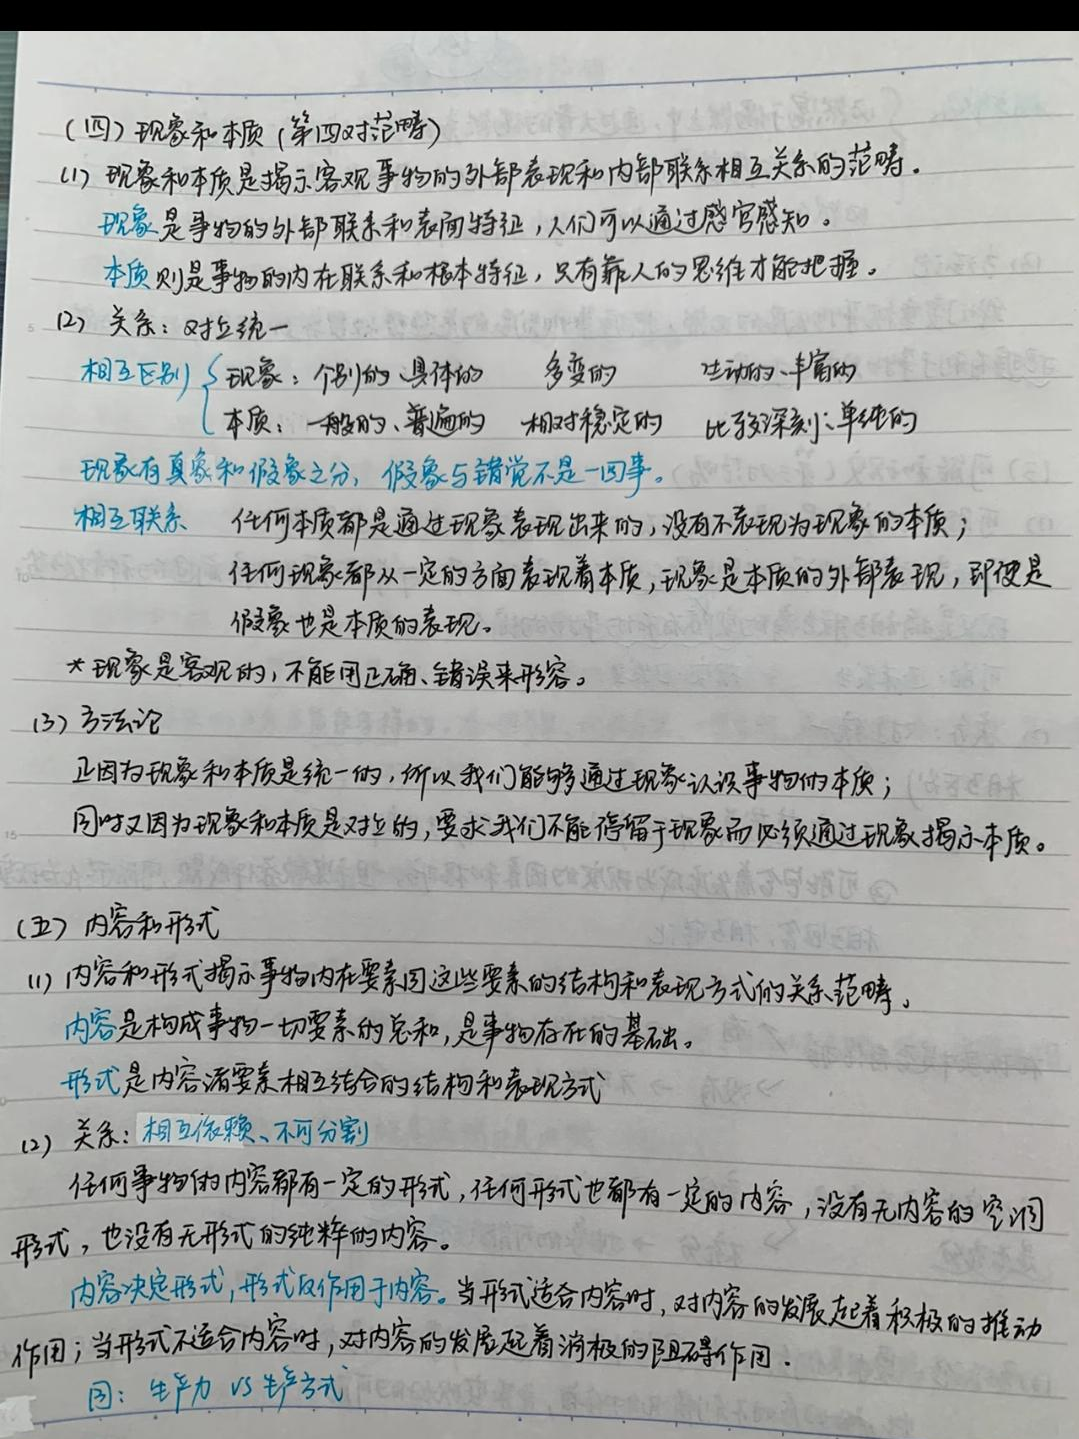 (四) 现象和本质 (第四对范畴)
(1) 现象和本质是揭示客观事物的外部表现和内部联系相互关系的范畴.
现象是事物的外部联系和表面特征,人们可以通过感官感知。
本质则是事物的内在联系和根本特征,只有靠人的思维才能把握。
(2) 关系:对立统一
相互区别 { 现象:个别的、具体的 多变的 生动的、丰富的
本质:一般的、普遍的 相对稳定的 比较深刻、单纯的
现象有真象和假象之分,假象与错觉不是一回事。
相互联系 任何本质都是通过现象表现出来的,没有不表现为现象的本质;
任何现象都从一定的方面表现着本质,现象是本质的外部表现,即便是
假象也是本质的表现。
*现象是客观的,不能用正确、错误来形容。
(3) 方法论
正因为现象和本质是统一的,所以我们能够通过现象认识事物的本质;
同时又因为现象和本质是对立的,要求我们不能停留于现象而必须通过现象揭示本质。
(五) 内容和形式
(1) 内容和形式揭示事物内在要素同这些要素的结构和表现方式的关系范畴.
内容是构成事物一切要素的总和,是事物存在的基础。
形式是内容诸要素相互结合的结构和表现方式
(2) 关系:相互依赖、不可分割
任何事物的内容都有一定的形式,任何形式也都有一定的内容,没有无内容的空洞
形式,也没有无形式的纯粹的内容。
内容决定形式,形式反作用于内容。当形式适合内容时,对内容的发展起着积极的推动
作用;当形式不适合内容时,对内容的发展起着消极的阻碍作用.
图:生产力 VS 生产方式